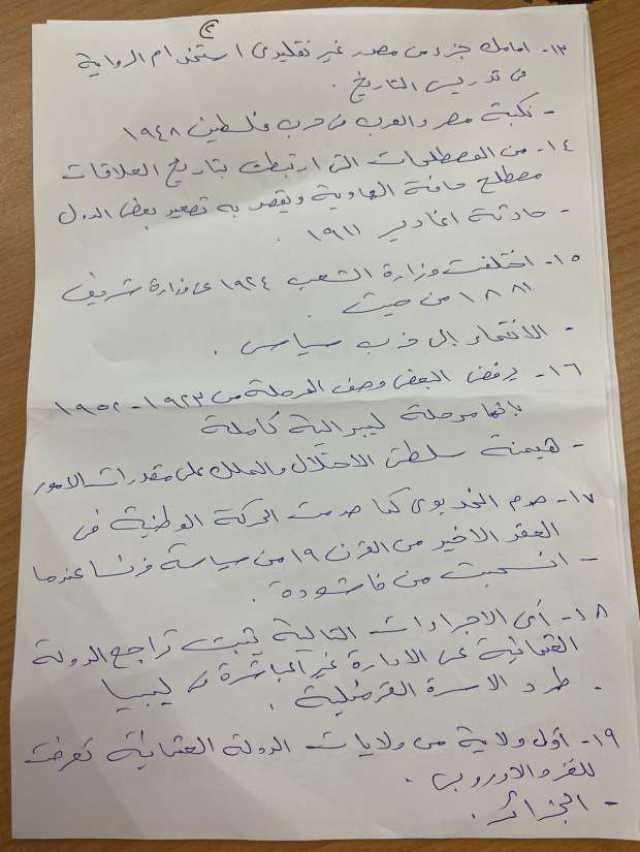 ٢
١٣- امامك جزء من مصدر غير تقليدى استخدام الرواية
فى تدريس التاريخ.
- نكبة مصر والعرب فى حرب فلسطين ١٩٤٨
١٤- من المصطلحات التى ارتبطت بتاريخ العلاقات
مصطلح حافة الهاوية ويقصد به تصعيد بعض الدول
- حادثة اغادير ١٩١١.
١٥- اختلفت وزارة الشعب ١٩٢٤ عن وزارة شريف
١٨٨١ من حيث.
- الانتماء إلى حزب سياسى.
١٦- يرفض البعض وصف المرحلة من ١٩٢٣-١٩٥٢
بانها مرحلة ليبرالية كاملة
- هيمنة سلطتى الاحتلال والملك على مقدرات الامور
١٧- صدم الخديوى كما صدمت الحركة الوطنية فى
العقد الاخير من القرن ١٩ من سياسة فرنسا عندما
- انسحبت من فاشودة.
١٨- أى الاجراءات التالية يثبت تراجع الدولة
العثمانية عن الادارة غير المباشرة فى ليبيا
- طرد الاسرة القرمنلية.
١٩- أول ولاية من ولايات الدولة العثمانية تعرضت
للغزو الاوروبى.
- الجزائر.